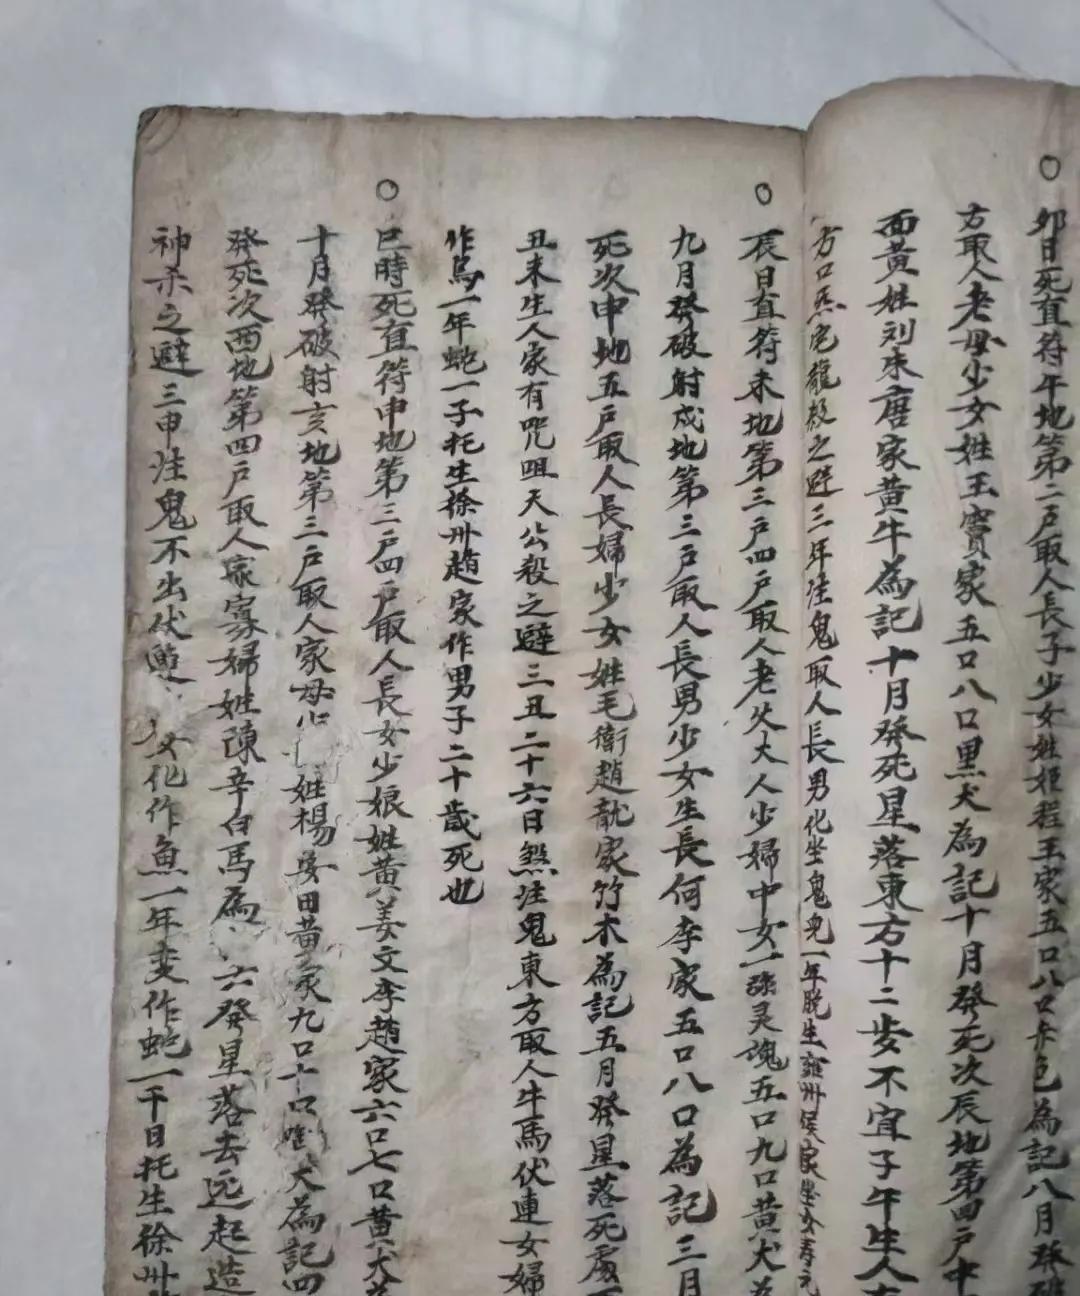 ○卯日死直符午地第二戶取人長子少女姓姬程王家五口八口赤色為記八月發破
方取人老母少女姓王竇家五口八口黑犬為記十月發死次辰地第四戶中
面黃姓刘朱唐家黃牛為記十月發死星落東方十二步不宜子午生人
方口黑色龍殺之避三年注鬼取人長男化坐鬼兒一年脫生雍州侯家坐女壽元
○辰日直符未地第三戶四戶取人老父大人少婦中女一孫灵魂五口九口黃犬為
九月發破射戍地第三戶取人長男少女生長何李家五口八口為記三月
死次申地五戶取人長婦少女姓毛衛趙龍家竹木為記五月發星落死處不
丑未生人家有咒咀天公殺之避三丑二十六日煞注鬼東方取人牛馬伏連女婦
作鳥一年蛇一子托生徐州趙家作男子二十歲死也
○巳時死直符申地第三戶四戶取人長女少娘姓黃姜文李趙家六口七口黃犬為
十月發破射亥地第三戶取人家母少 姓楊安田黃家九口十口 犬為記四
發死次西地第四戶取人家寡婦姓陳辛白馬為 六發星落去远起造
神杀之避三申注鬼不出伏 女化作魚一年变作蛇一千日托生徐州